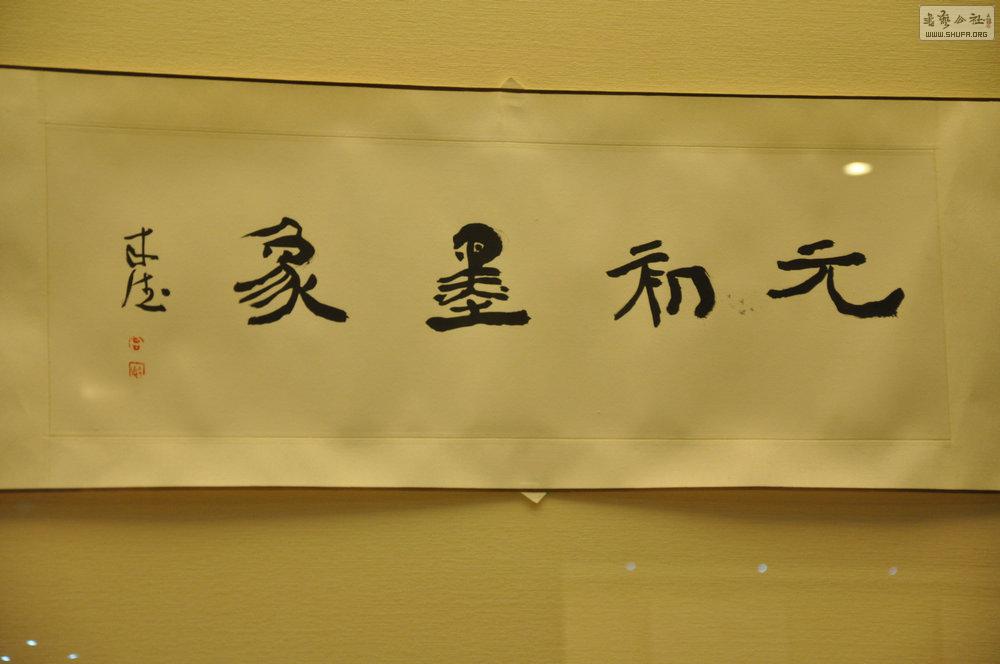 元初墨象
来德
书艺公社
WWW.SHUFA.ORG